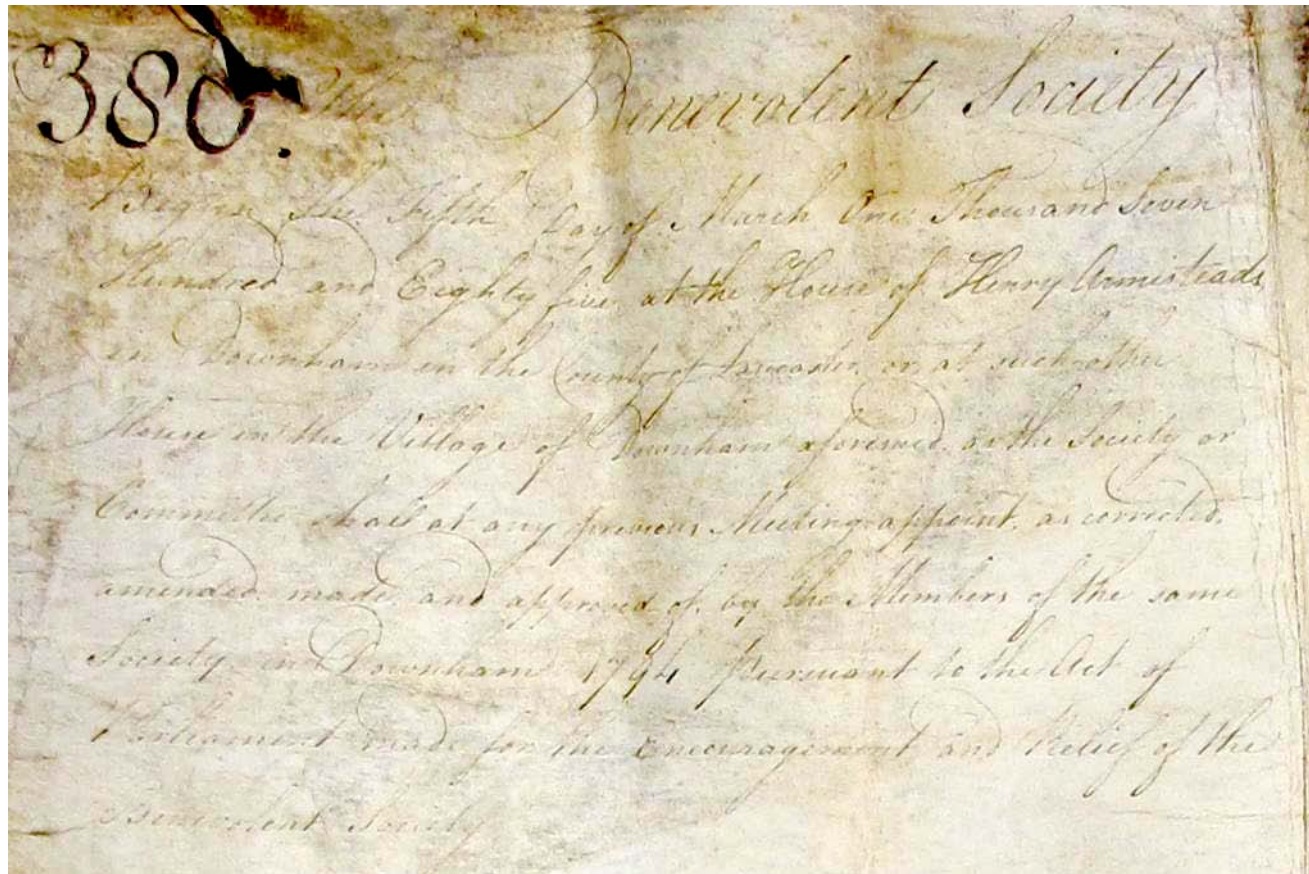 380.
The Benevolent Society
Begun the Fifth Day of March One Thousand Seven
Hundred and Eighty five at the House of Henry Armisteads
in Downham in the County of Lancaster or at such other
House in the Village of Downham aforesaid, as the Society or
Committee shall at any previous Meeting appoint, as corrected,
amended, made, and approved of, by the Members of the same
Society in Downham 1794 Pursuant to the Act of
Parliament made for the Encouragement and Relief of the
Benevolent Society